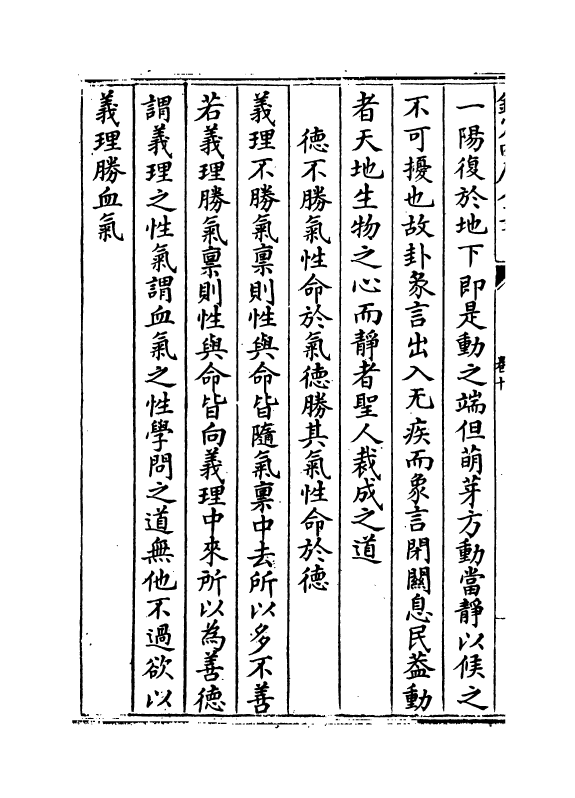 一陽復於地下即是動之端但萌芽方動當靜以候之
不可擾也故卦彖言出入无疾而象言閉關息民葢動
者天地生物之心而靜者聖人裁成之道
德不勝氣性命於氣德勝其氣性命於德
義理不勝氣稟則性與命皆隨氣稟中去所以多不善
若義理勝氣稟則性與命皆向義理中來所以為善德
謂義理之性氣謂血氣之性學問之道無他不過欲以
義理勝血氣
卷十